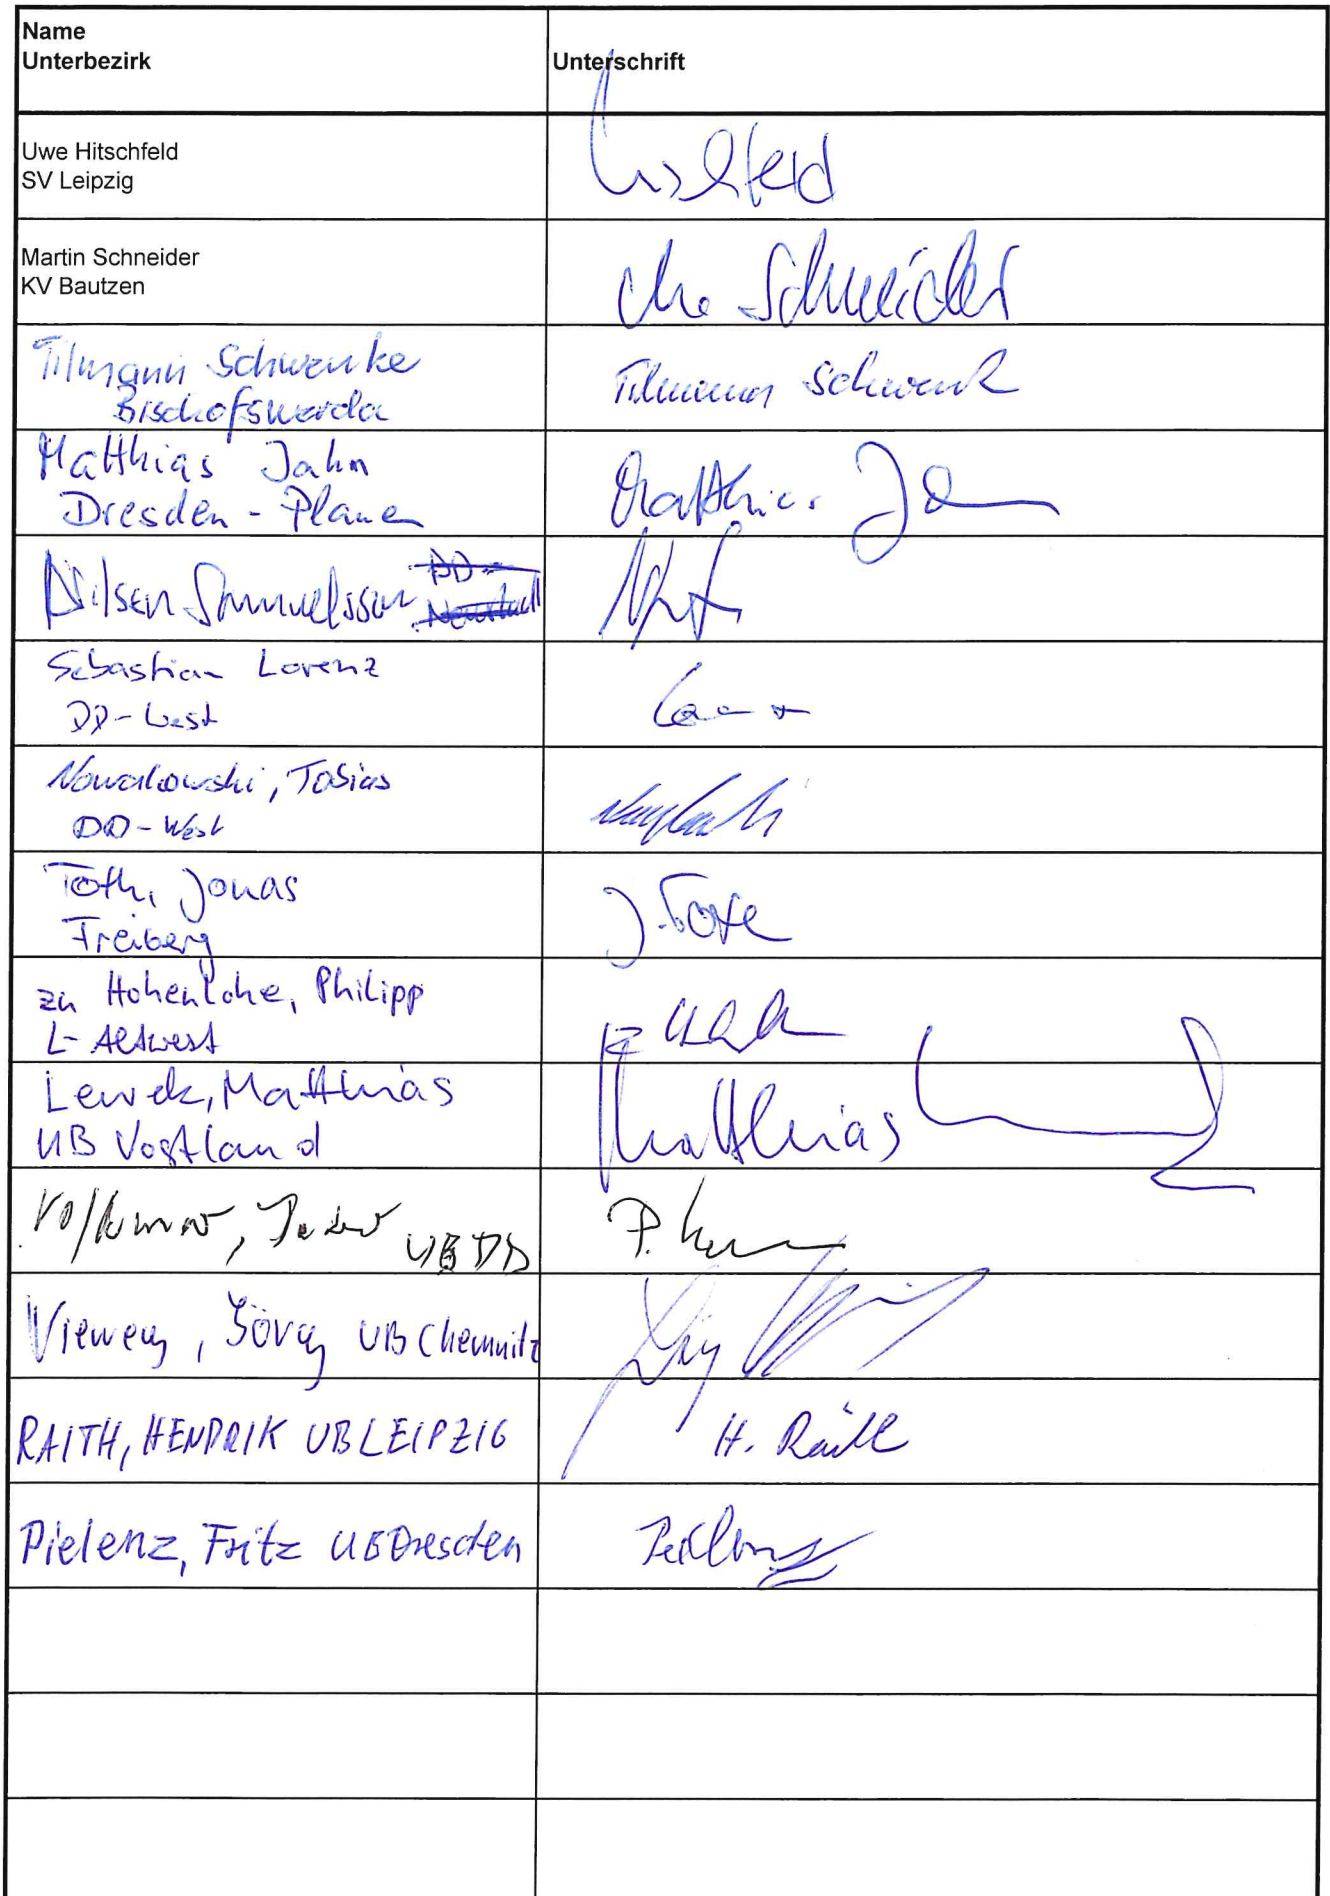 Name
Unterbezirk
Unterschrift
Uwe Hitschfeld
SV Leipzig
Martin Schneider
KV Bautzen
Schneider
Tilmann Schwenke
Bischofswerda
Tilmann Schwenk
Matthias Jahn
Dresden - Plauen
Matthias
Nilsen Samuelsson DD-
Neustadt
Sebastian Lorenz
DD-West
Nowakowski, Tobias
DD-West
Toth, Jonas
Freiberg
J. Toth
zu Hohenlohe, Philipp
L-Altwest
Lewek, Matthias
UB Vogtland
Matthias
Volkmar, UB DD
P.
Vieweg, Jörg UB Chemnitz
RAITH, HENDRIK UB LEIPZIG
H. Raith
Pielenz, Fritz UB Dresden